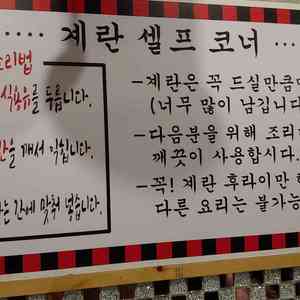 ····· 계란 셀프 코너 ·····
조리법
식용유를 두릅니다.
깨서 익힙니다.
간에 맞춰 넣습니다.
-계란은 꼭 드실만큼만
(너무 많이 남깁니다
-다음분을 위해 조리
깨끗이 사용합시다.
-꼭! 계란 후라이만
다른 요리는 불가능